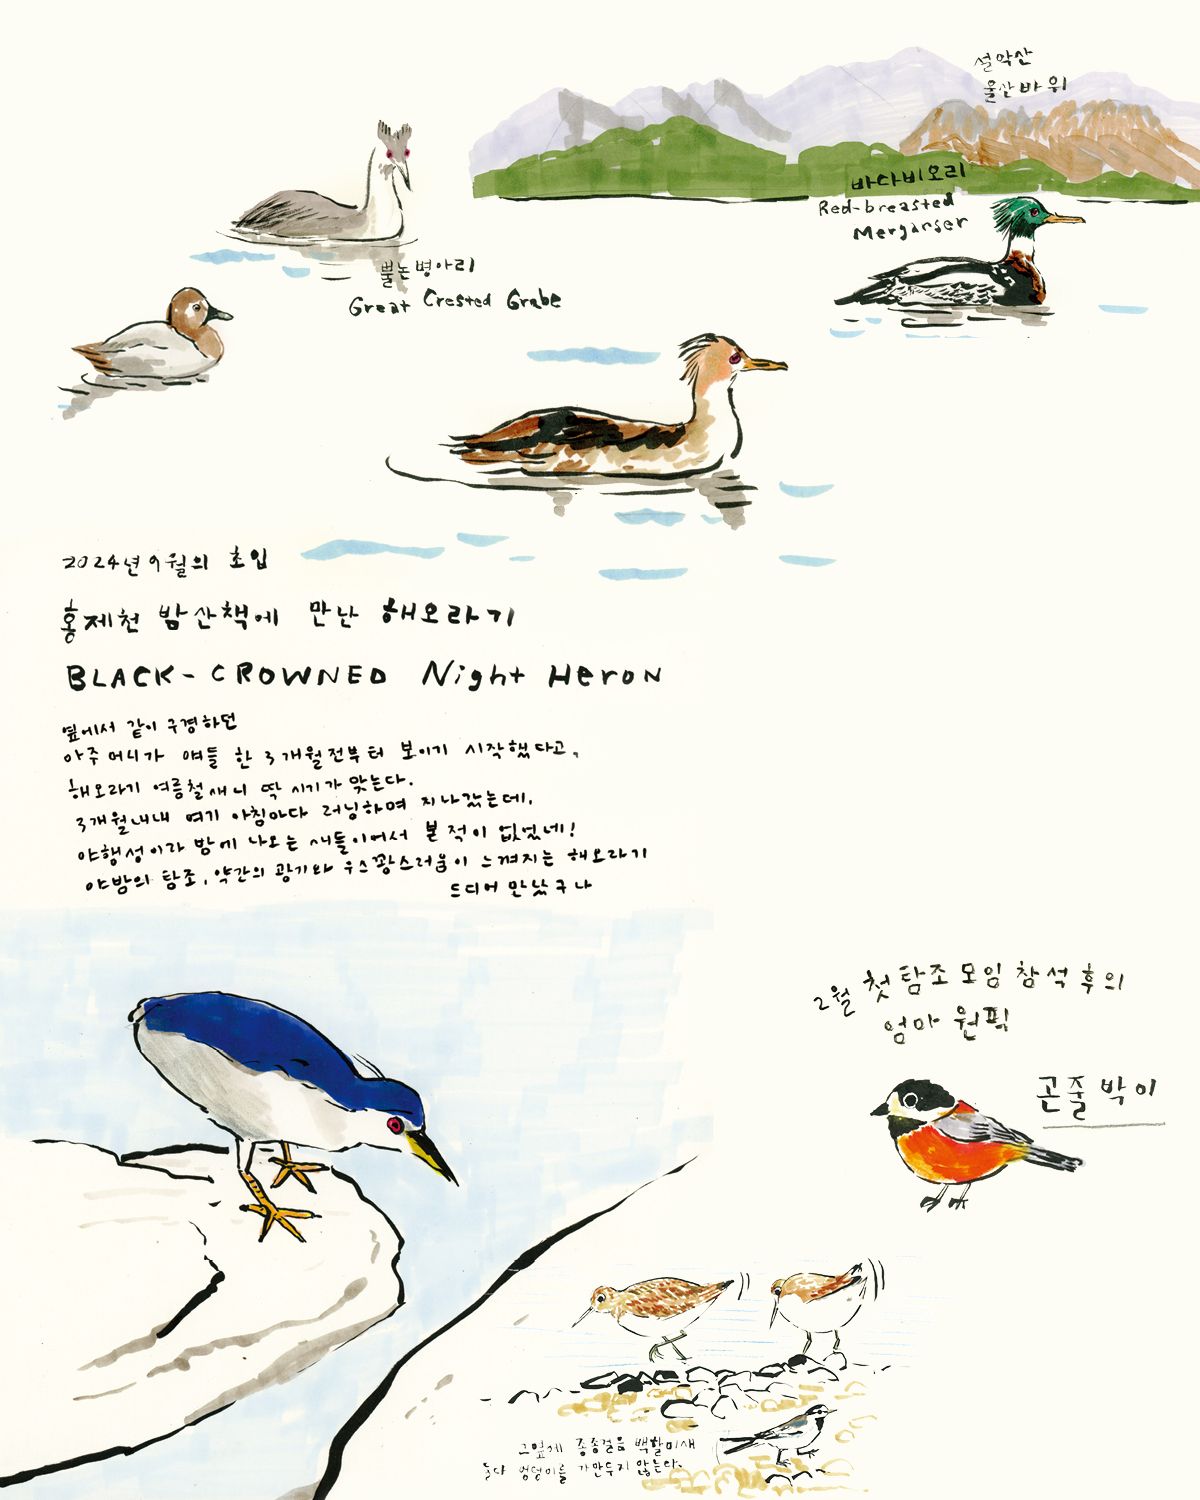 설악산
울산바위
바다비오리
Red-breasted
Merganser
뿔논병아리
Great Crested Grabe
2024년 9월의 초입
홍제천 밤산책에 만난 해오라기
BLACK-CROWNED Night Heron
옆에서 같이 구경하던
아주머니가 얘들 한 3개월전부터 보이기 시작했다고,
해오라기 여름철새니 딱 시기가 맞는다.
3개월내내 여기 아침마다 러닝하며 지나갔는데,
야행성이라 밤에 나오는 새들이어서 본 적이 없었네!
야밤의 탐조, 약간의 광기와 우스꽝스러움이 느껴지는 해오라기
드디어 만났구나
2월 첫 탐조모임 참석 후의
엄마 원픽
곤줄박이
그옆에 종종걸음 백할미새
둘다 엉덩이를 가만두지 않는다.